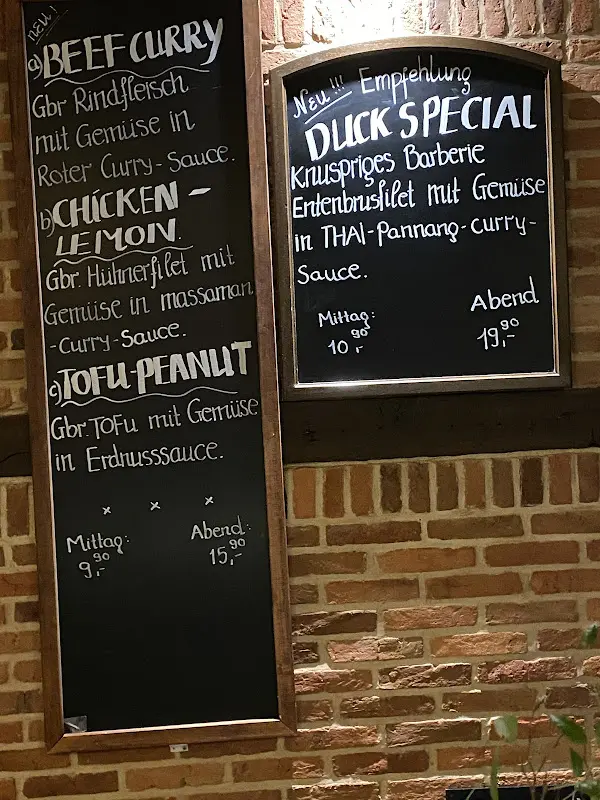 NEU!
a) BEEF CURRY
Gbr Rindfleisch
mit Gemüse in
Roter Curry-Sauce.
b) CHICKEN -
LEMON
Gbr. Hühnerfilet mit
Gemüse in massaman
-Curry-Sauce.
c) TOFU-PEANUT
Gbr. TOFU mit Gemüse
in Erdnusssauce.
x x x
Mittag: Abend:
9,90- 15,90-
Neu!!! Empfehlung
DUCK SPECIAL
Knuspriges Barberie
Entenbrusfilet mit Gemüse
in THAI-Pannang-curry-
Sauce.
Mittag: Abend
10,90- 19,90-